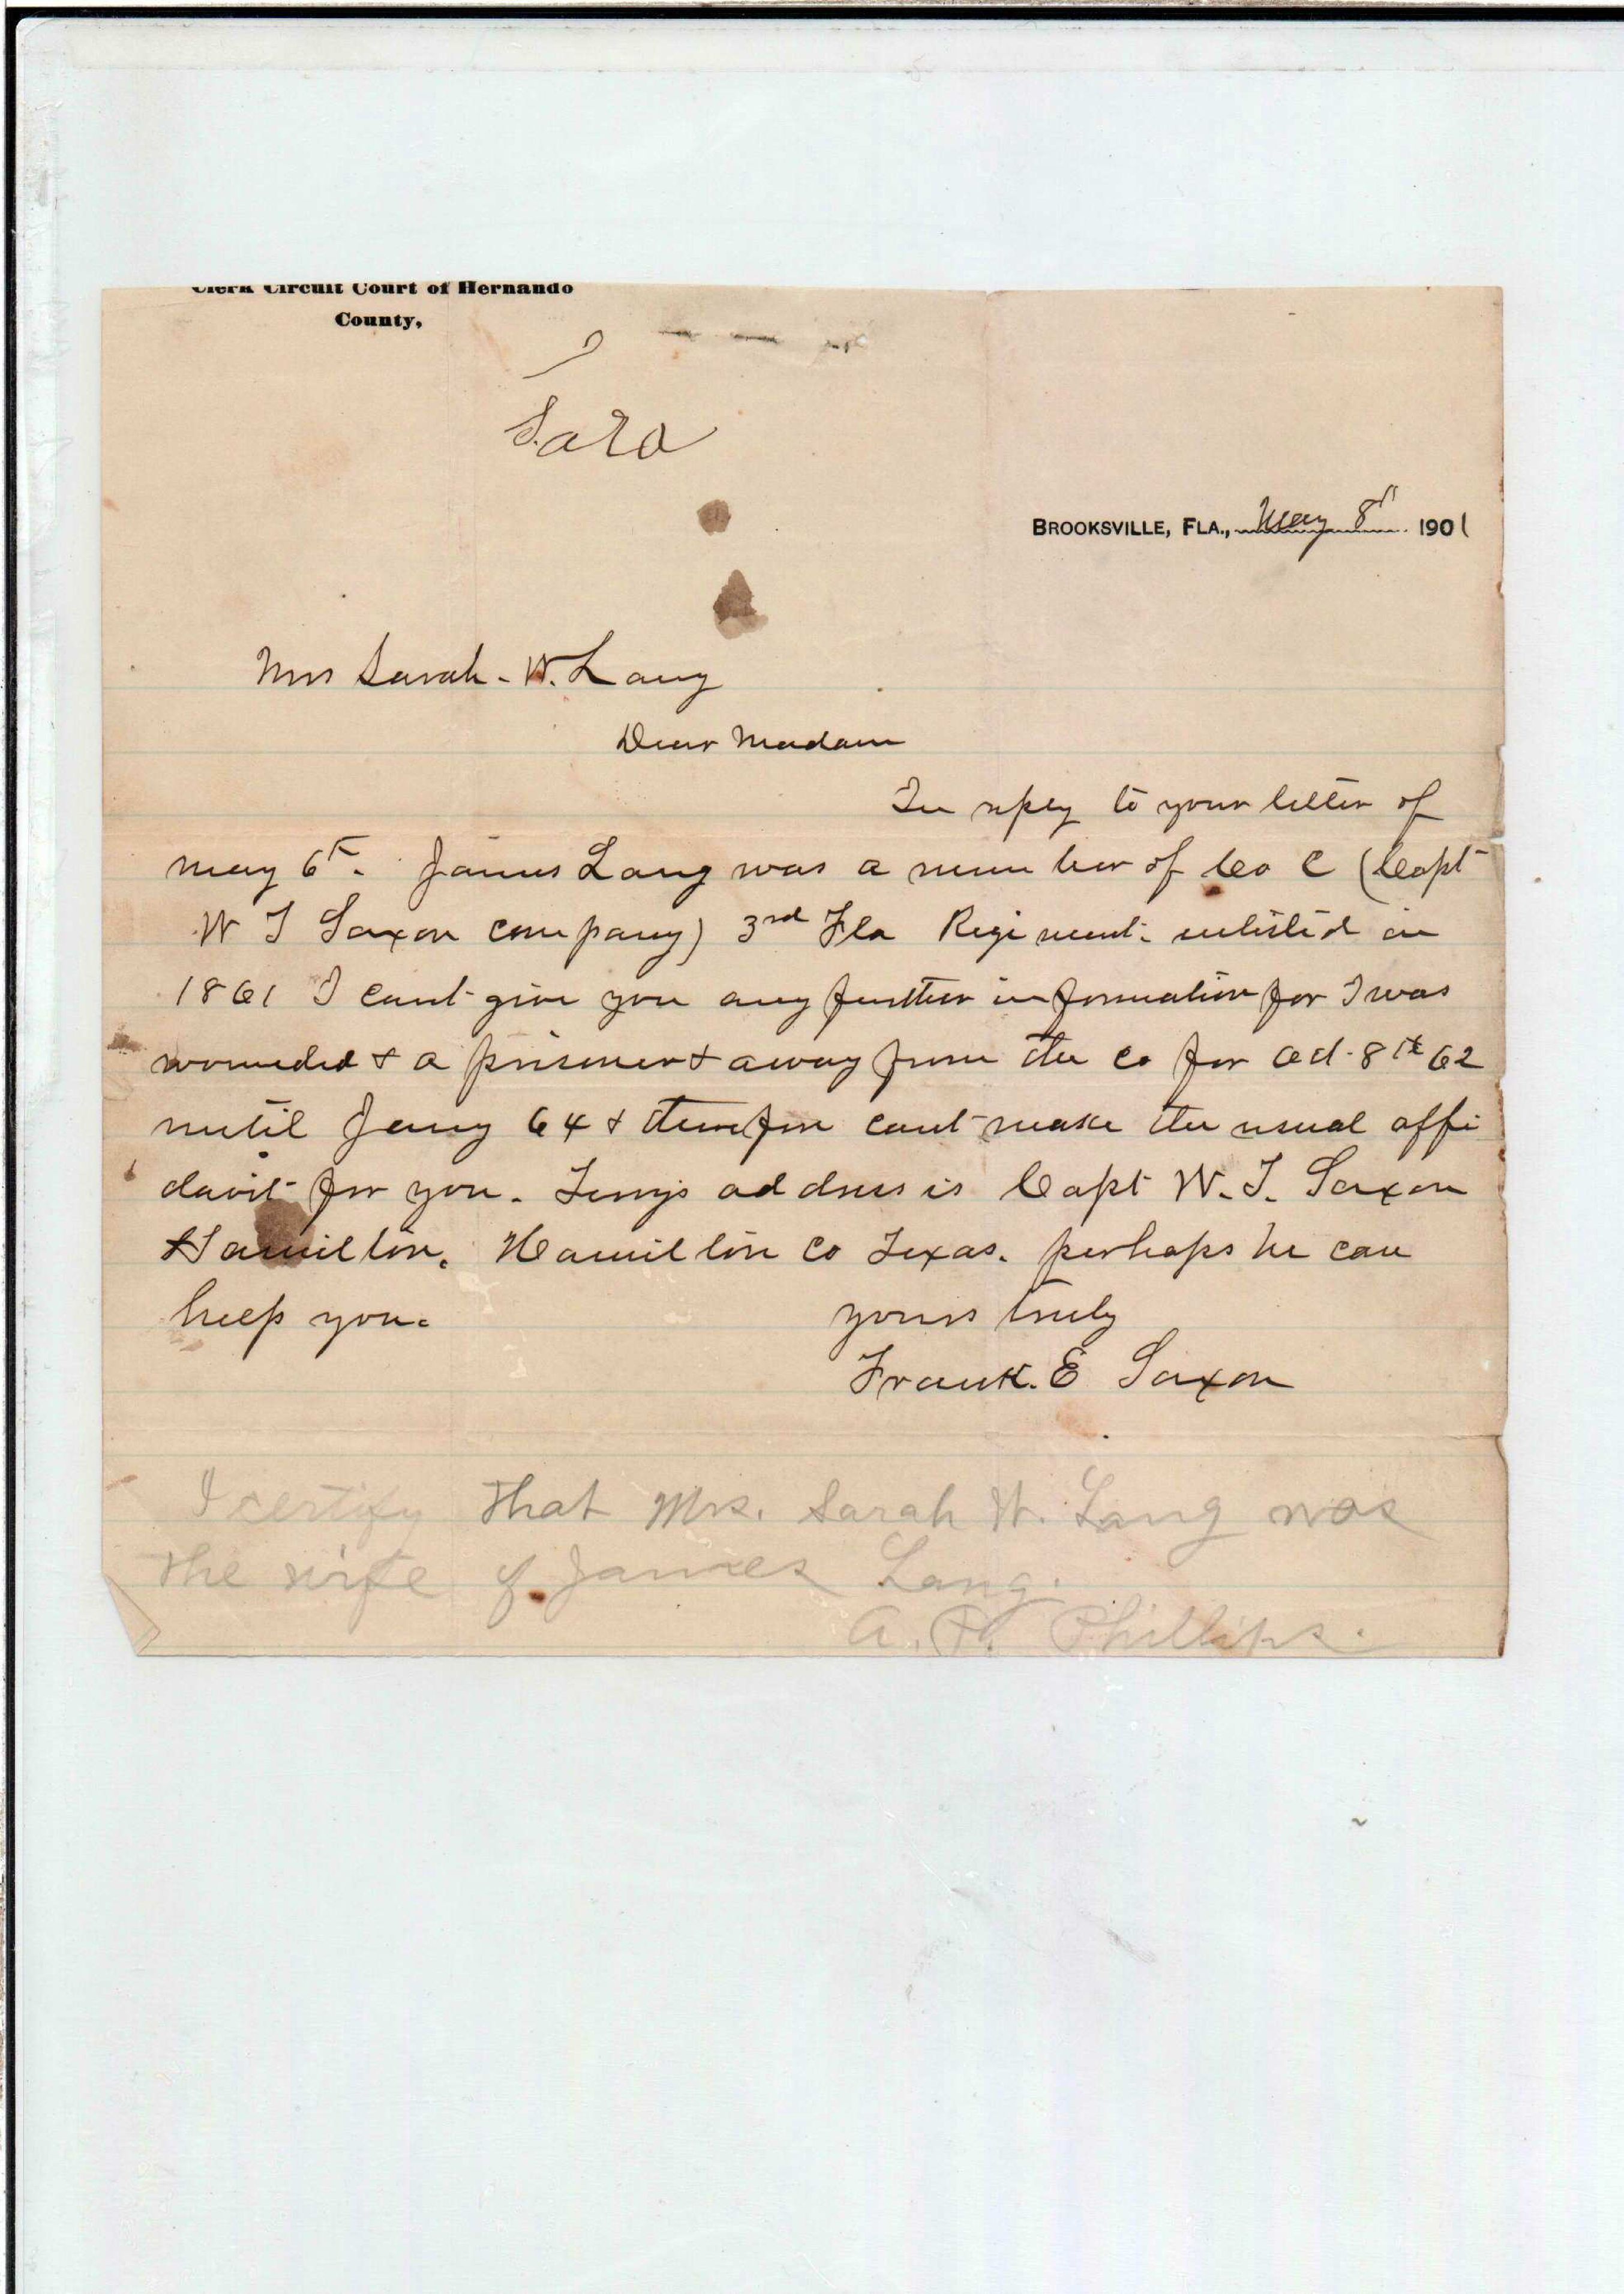 Clerk Circuit Court of Hernando
County,
Sara
BROOKSVILLE, FLA., May 8th 1901
Mrs Sarah. W. Lang
Dear Madam
In reply to your letter of
may 6th. James Lang was a member of Co C (Capt
W T Saxon company) 3rd Fla Regiment. enlisted in
1861 I cant give you any further information for I was
wounded & a prisoner & away from the Co for Oct. 8th 62
until Jany 64 & therefore cant make the usual affi
davit for you. address is Capt W. T. Saxon
Hamilton. Hamilton Co Texas. perhaps he can
help you.
yours truly
Frank. E Saxon
I certify that Mrs. Sarah W. Lang was
the wife of James Lang.
A. Phillips.